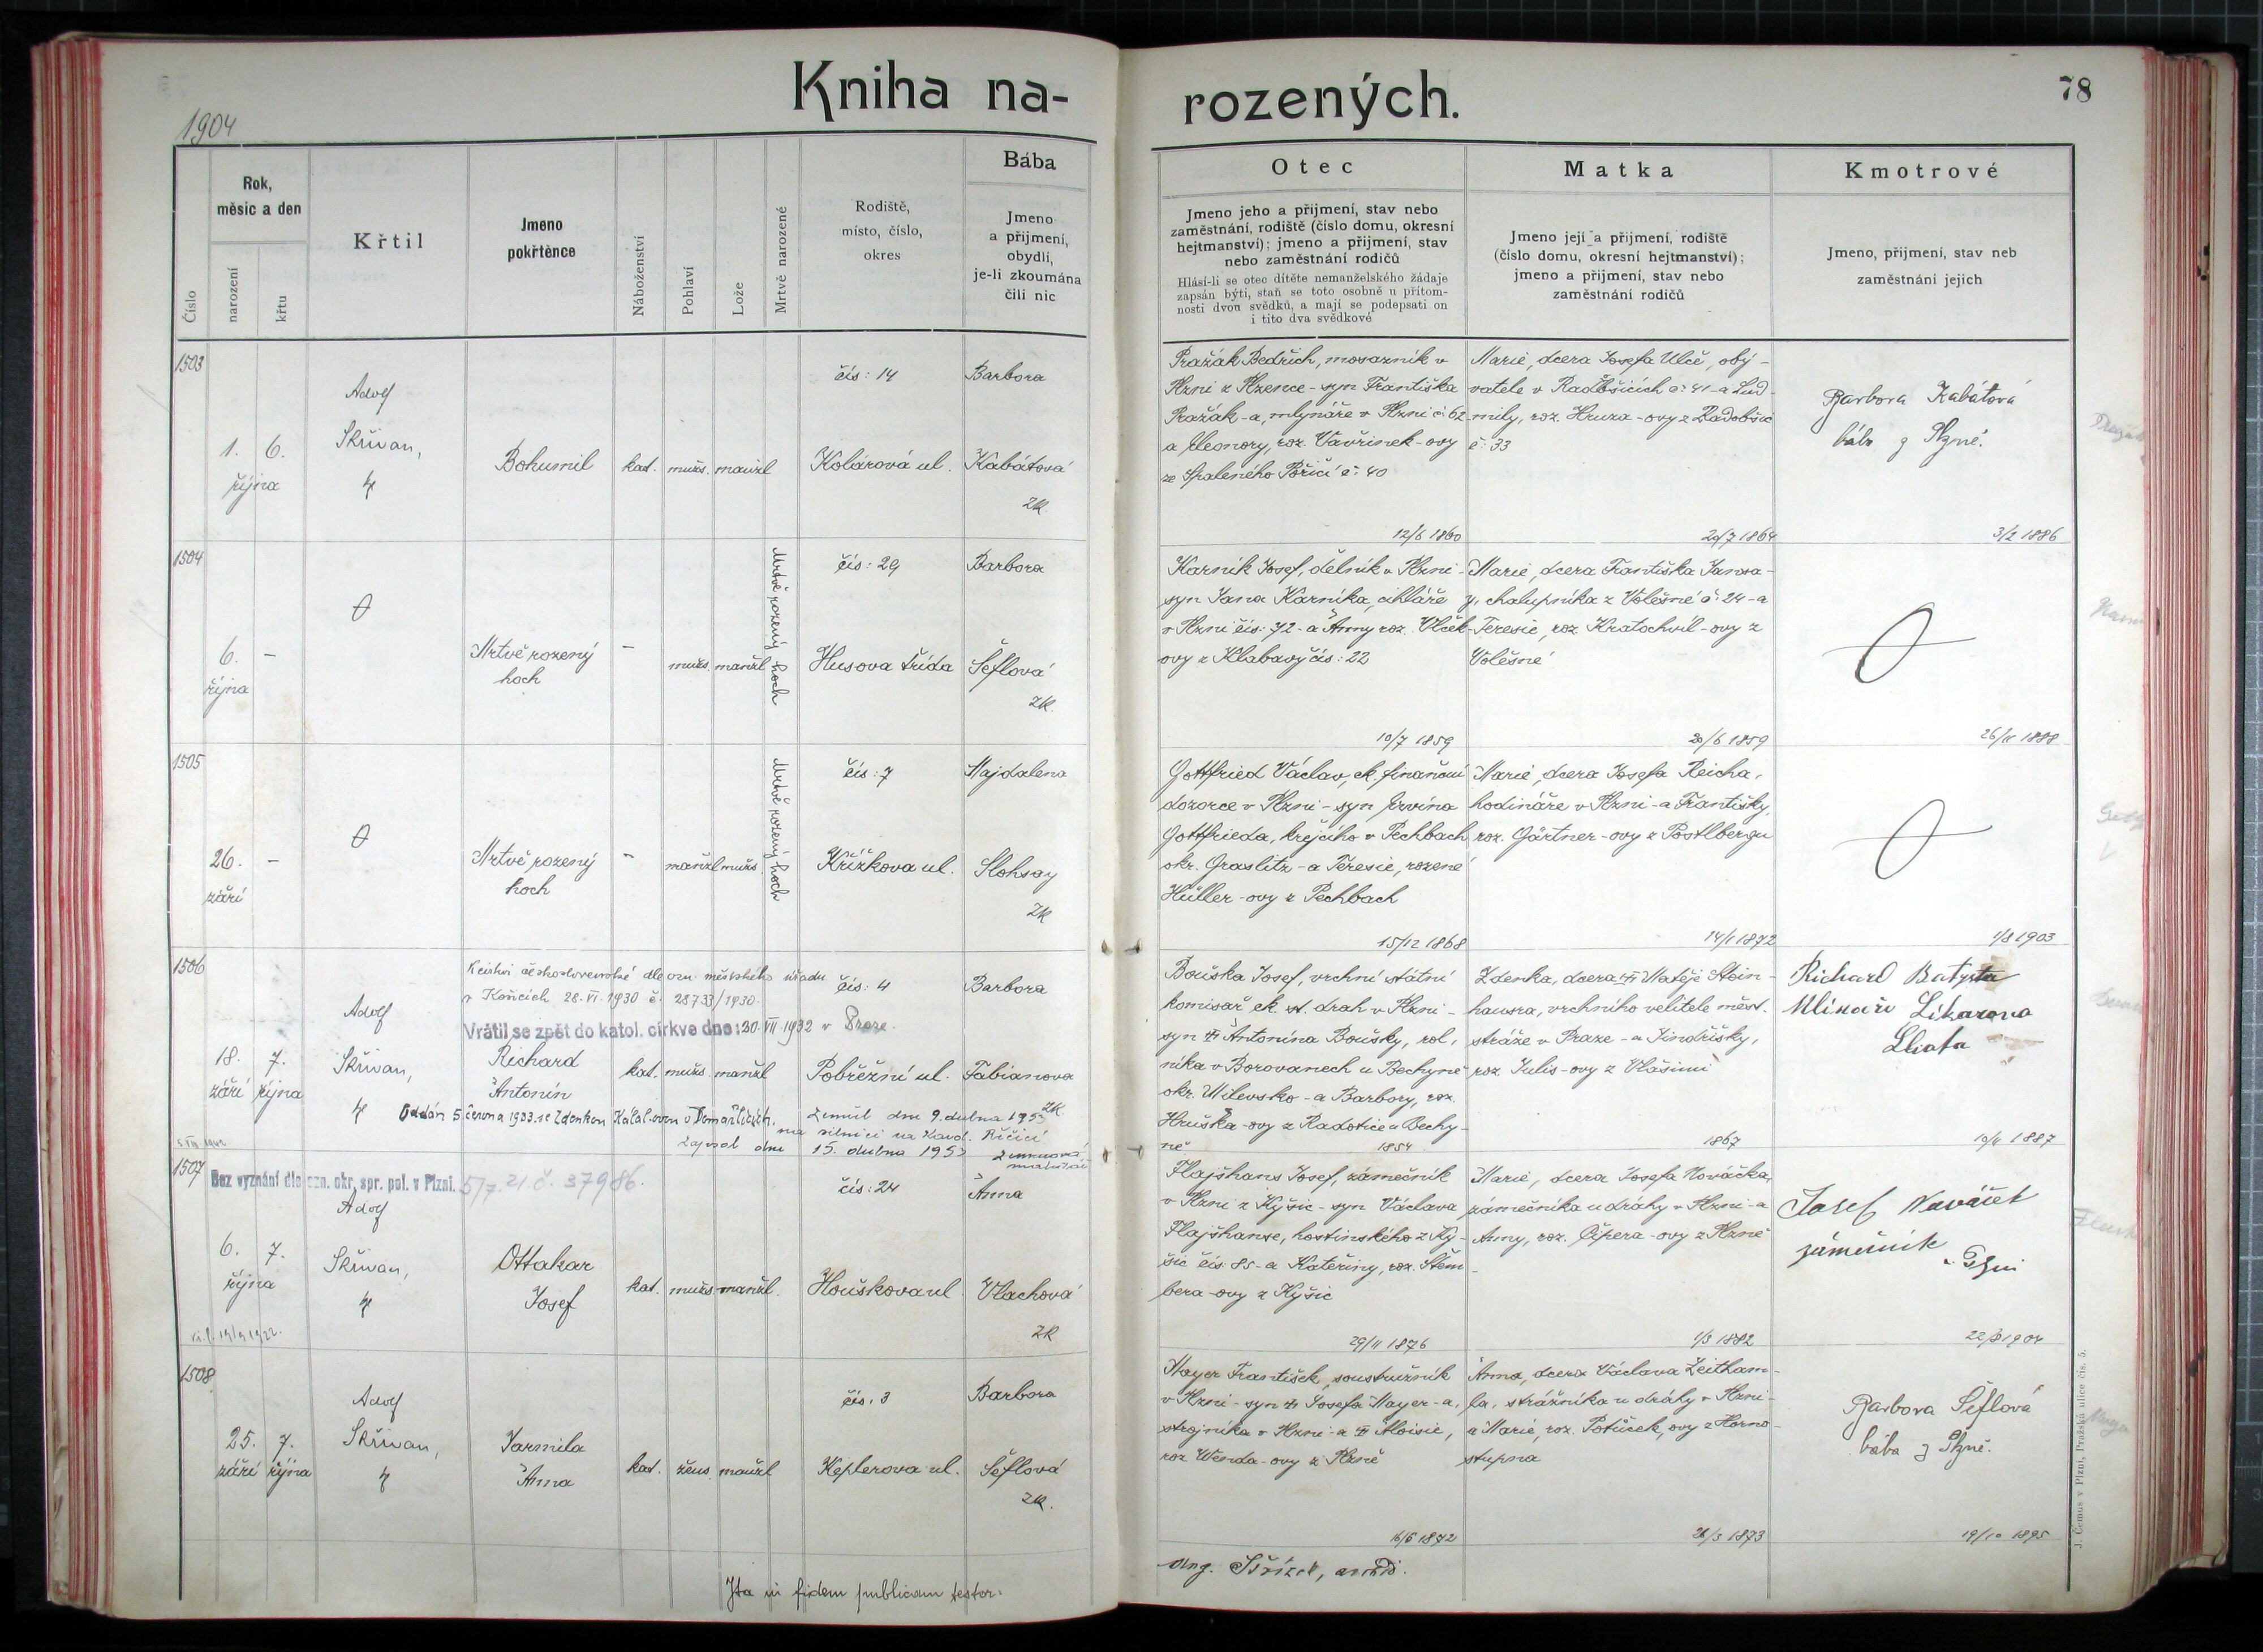 Kniha na-
rozených.
78
1904
Číslo
Rok,
měsíc a den
narození
křtu
Křtil
Jmeno
pokřtěnce
Náboženství
Pohlaví
Lože
Mrtvě narozené
Rodiště,
místo, číslo,
okres
Bába
Jmeno
a přijmení,
obydlí,
je-li zkoumána
čili nic
Otec
Jmeno jeho a přijmení, stav nebo
zaměstnání, rodiště (číslo domu, okresní
hejtmanství); jmeno a přijmení, stav
nebo zaměstnání rodičů
Hlásí-li se otec dítěte nemanželského žádaje
zapsán býti, staň se toto osobně u přítom-
nosti dvou svědků, a mají se podepsati on
i tito dva svědkové
Matka
Jmeno její a přijmení, rodiště
(číslo domu, okresní hejtmanství);
jmeno a přijmení, stav nebo
zaměstnání rodičů
Kmotrové
Jmeno, přijmení, stav neb
zaměstnání jejich
1503
1. 6.
října
Adolf
Skřivan,
Bohumil
kat.
mužs.
manžel
čís: 14
Kolárová ul.
Barbora
Kabátová
zk
Pražák Bedřich, mosazník v
Plzni z Plzence - syn Františka
Pražák-a, mlynáře v Plzni č: 62
a Eleonory, roz. Vavřinek-ovy
ze Spáleného Poříčí č: 40
12/6 1860
Marie, dcera Josefa Ulče, oby-
vatele v Radobšicích č: 41 - a Lud-
mily, roz. Hruza-ovy z Radobšic
č: 33
20/7 1864
Barbora Kabátová
bába z Plzně.
3/2 1886
1504
6. -
října
Mrtvě rozený
hoch
-
mužs.
manžel
Mrtvě rozený hoch
čís: 29
Husova třída
Barbora
Šeflová
zk.
Karník Josef, dělník v Plzni -
syn Jana Karníka, cihláře
v Plzni čís: 72 - a Anny roz. Vlček-
ovy z Klabavy čís: 22
10/7 1859
Marie, dcera Františka Jansa-
y, chalupníka z Volešné č: 24 - a
Teresie, roz. Kratochvíl-ovy z
Volešné
20/6 1859
26/11 1888
1505
26. -
září
Mrtvě rozený
hoch
-
manžel
mužs.
Mrtvě rozený hoch
čís: 7
Křížkova ul.
Majdalena
Slohsay
zk
Gottfried Václav, ck. finanční
dozorce v Plzni - syn Ervína
Gottfrieda, krejčího v Pechbach
okr. Graslitz - a Teresie, rozené
Hüller-ovy z Pechbach
15/12 1868
Marie, dcera Josefa Reicha,
hodináře v Plzni - a Františky,
roz. Gärtner-ovy z Postlbergu
14/1 1872
1/8 1903
1506
K církvi československé dle ozn. městského úřadu
v Košicích 28. VI. 1930 č. 28733/1930.
Vrátil se zpět do katol. církve dne: 20. VII. 1932 v Praze.
18. 7.
září října
Adolf
Skřivan,
Richard
Antonín
kat.
mužs.
manžel
čís: 4
Pobřežní ul.
Barbora
Fabianova
zk
Oddán 5. června 1933. se Zdenkou Kálal-ovou v Domažlicích.
Zemřel dne 9. dubna 1953
na silnici na Kard. Říčicí
Zapsal dne 15. dubna 1953
Bouška Josef, vrchní státní
komisař ck. st. drah v Plzni -
syn Antonína Boušky, rol,
níka v Borovanech u Bechyně
okr. Milevsko - a Barbory, roz.
Hruška-ovy z Radotice u Bechy-
ně
1854
Zdenka, dcera Matěje Stein-
hausra, vrchního velitele měst.
stráže v Praze - a Jindřišky,
roz. Julis-ovy z Vlašimi
1867
Richard Batysta
10/11 1887
1507
Bez vyznání dle ozn. okr. spr. pol. v Plzni. 5/7. 21. č. 37986.
6. 7.
října
Adolf
Skřivan,
Ottakar
Josef
kat.
mužs.
manžel.
čís: 24
Houškova ul.
Anna
Vlachová
zk
Flajšhans Josef, zámečník
v Plzni z Kyšic - syn Václava
Flajšhanse, hostinského z Ky-
šic čís: 85 - a Kateřiny, roz. Štem-
bera-ovy z Kyšic
29/11 1876
Marie, dcera Josefa Nováčka,
zámečníka u dráhy v Plzni - a
Anny, roz. Čepera-ovy z Plzně
1/3 1882
Josef Nováček
zámečník
v Plzni
1508
25. 7.
září října
Adolf
Skřivan,
Jarmila
Anna
kat.
žens.
manžel
čís. 3
Keplerova ul.
Barbora
Šeflová
zk.
Mayer František, soustružník
v Plzni - syn Josefa Mayer-a,
strojníka v Plzni - a Aloisie,
roz Wenda-ovy z Plzně
16/6 1872
Anna, dcera Václava Zeitham-
la, strážníka u dráhy v Plzni -
a Marie, roz. Potůček, ovy z Horno-
stupna
28/3 1873
Barbora Šeflová
bába z Plzně.
19/10 1895
Ita in fidem publicam testor:
J. Čemus v Plzni, Pražská ulice čís. 5.